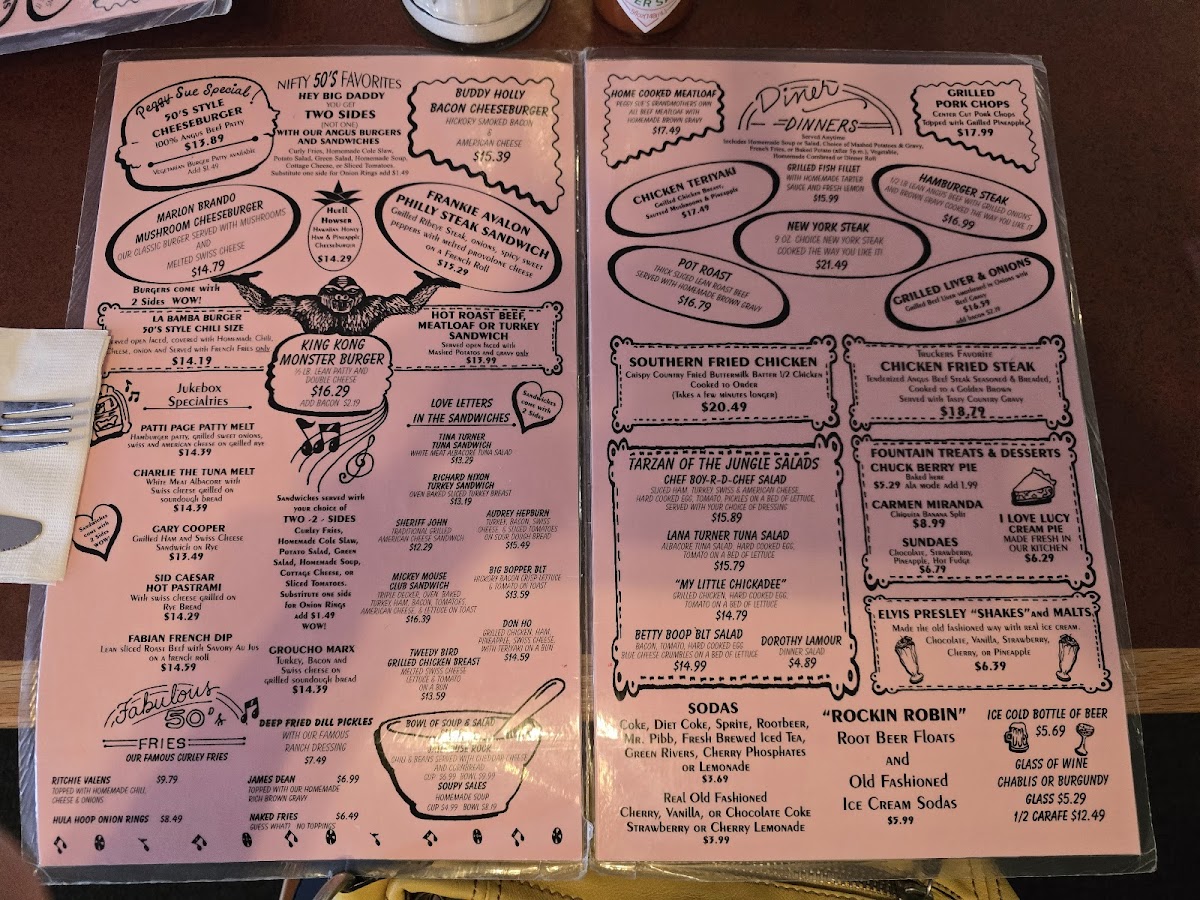 Peggy Sue Special!
50'S STYLE
CHEESEBURGER
100% Angus Beef Patty
$13.89
Vegetarian Burger Patty available
Add $1.49
NIFTY 50'S FAVORITES
HEY BIG DADDY
YOU GET
TWO SIDES
(NOT ONE)
WITH OUR ANGUS BURGERS
AND SANDWICHES
Curly Fries, Homemade Cole Slaw,
Potato Salad, Green Salad, Homemade Soup,
Cottage Cheese, or Sliced Tomatoes.
Substitute one side for Onion Rings add $1.49
BUDDY HOLLY
BACON CHEESEBURGER
HICKORY SMOKED BACON
&
AMERICAN CHEESE
$15.39
MARLON BRANDO
MUSHROOM CHEESEBURGER
OUR CLASSIC BURGER SERVED WITH MUSHROOMS
AND
MELTED SWISS CHEESE
$14.79
Huell
Howser
Hawaiian Honey
Ham & Pineapple
Cheeseburger
$14.29
FRANKIE AVALON
PHILLY STEAK SANDWICH
Grilled Ribeye Steak, onions, spicy sweet
peppers with melted provolone cheese
on a French Roll
$15.29
Burgers come with
2 Sides WOW!
LA BAMBA BURGER
50'S STYLE CHILI SIZE
Served open faced, covered with Homemade Chili,
Cheese, onion and Served with French Fries only
$14.19
KING KONG
MONSTER BURGER
½ LB. LEAN PATTY AND
DOUBLE CHEESE
$16.29
ADD BACON $2.19
HOT ROAST BEEF,
MEATLOAF OR TURKEY
SANDWICH
Served open faced with
Mashed Potatos and gravy only
$13.99
Jukebox
Specialties
PATTI PAGE PATTY MELT
Hamburger patty, grilled sweet onions,
swiss and american cheese on grilled rye
$14.39
CHARLIE THE TUNA MELT
White Meat Albacore with
Swiss cheese grilled on
sourdough bread
$14.39
Sandwiches
come with
2 Sides
WOW!
GARY COOPER
Grilled Ham and Swiss Cheese
Sandwich on Rye
$13.49
SID CAESAR
HOT PASTRAMI
With swiss cheese grilled on
Rye Bread
$14.29
FABIAN FRENCH DIP
Lean sliced Roast Beef with Savory Au Jus
on a french roll
$14.59
Sandwiches served with
your choice of
TWO -2- SIDES
Curley Fries,
Homemade Cole Slaw,
Potato Salad, Green
Salad, Homemade Soup,
Cottage Cheese, or
Sliced Tomatoes.
Substitute one side
for Onion Rings
add $1.49
WOW!
GROUCHO MARX
Turkey, Bacon and
Swiss cheese on
grilled sourdough bread
$14.39
LOVE LETTERS
IN THE SANDWICHES
Sandwiches
come with
2 Sides
TINA TURNER
TUNA SANDWICH
WHITE MEAT ALBACORE TUNA SALAD
$13.29
RICHARD NIXON
TURKEY SANDWICH
OVEN BAKED SLICED TURKEY BREAST
$13.19
SHERIFF JOHN
TRADITIONAL GRILLED
AMERICAN CHEESE SANDWICH
$12.29
AUDREY HEPBURN
TURKEY, BACON, SWISS
CHEESE, & SLICED TOMATOES
ON SOUR DOUGH BREAD
$15.49
MICKEY MOUSE
CLUB SANDWICH
TRIPLE DECKER, OVEN BAKED
TURKEY, HAM, BACON, TOMATOES,
AMERICAN CHEESE, & LETTUCE ON TOAST
$16.39
BIG BOPPER BLT
HICKORY BACON CRISP LETTUCE
& TOMATO ON TOAST
$13.59
DON HO
GRILLED CHICKEN, HAM,
PINEAPPLE, SWISS CHEESE,
WITH TERIYAKI ON A BUN
$14.59
TWEEDY BIRD
GRILLED CHICKEN BREAST
MELTED SWISS CHEESE
LETTUCE & TOMATO
ON A BUN
$13.59
Fabulous
50's
FRIES
OUR FAMOUS CURLEY FRIES
DEEP FRIED DILL PICKLES
WITH OUR FAMOUS
RANCH DRESSING
$7.49
RITCHIE VALENS $9.79
TOPPED WITH HOMEMADE CHILI,
CHEESE & ONIONS
JAMES DEAN $6.99
TOPPED WITH OUR HOMEMADE
RICH BROWN GRAVY
HULA HOOP ONION RINGS $8.49
NAKED FRIES $6.49
GUESS WHAT? NO TOPPINGS
BOWL OF SOUP & SALAD
JAILHOUSE ROCK
CHILI & BEANS SERVED WITH CHEDDAR CHEESE
AND CORNBREAD
CUP $6.99 BOWL $9.99
SOUPY SALES
HOMEMADE SOUP
CUP $4.99 BOWL $8.19
HOME COOKED MEATLOAF
PEGGY SUE'S GRANDMOTHERS OWN
ALL BEEF MEATLOAF WITH
HOMEMADE BROWN GRAVY
$17.49
Diner
DINNERS
Served Anytime
Includes Homemade Soup or Salad, Choice of Mashed Potatoes & Gravy,
French Fries, or Baked Potato (after 5p.m.), Vegetable,
Homemade Cornbread or Dinner Roll
GRILLED
PORK CHOPS
Center Cut Pork Chops
Topped with Grilled Pineapple
$17.99
CHICKEN TERIYAKI
Grilled Chicken Breast,
Sauteed Mushrooms & Pineapple
$17.49
GRILLED FISH FILLET
WITH HOMEMADE TARTER
SAUCE AND FRESH LEMON
$15.99
HAMBURGER STEAK
1/2 LB LEAN ANGUS BEEF WITH GRILLED ONIONS
AND BROWN GRAVY COOKED THE WAY YOU LIKE IT
$16.99
NEW YORK STEAK
9 OZ. CHOICE NEW YORK STEAK
COOKED THE WAY YOU LIKE IT!
$21.49
POT ROAST
THICK SLICED LEAN ROAST BEEF
SERVED WITH HOMEMADE BROWN GRAVY
$16.79
GRILLED LIVER & ONIONS
Grilled Beef Liver smothered in Onions with
Beef Gravy
$16.59
add bacon $2.19
SOUTHERN FRIED CHICKEN
Crispy Country Fried Buttermilk Batter 1/2 Chicken
Cooked to Order
(Takes a few minutes longer)
$20.49
Truckers Favorite
CHICKEN FRIED STEAK
Tenderized Angus Beef Steak Seasoned & Breaded,
Cooked to a Golden Brown
Served with Tasty Country Gravy
$18.79
TARZAN OF THE JUNGLE SALADS
CHEF BOY-R-D-CHEF SALAD
SLICED HAM, TURKEY, SWISS & AMERICAN CHEESE,
HARD COOKED EGG, TOMATO, PICKLES ON A BED OF LETTUCE,
SERVED WITH YOUR CHOICE OF DRESSING
$15.89
LANA TURNER TUNA SALAD
ALBACORE TUNA SALAD, HARD COOKED EGG,
TOMATO ON A BED OF LETTUCE
$15.79
"MY LITTLE CHICKADEE"
GRILLED CHICKEN, HARD COOKED EGG,
TOMATO ON A BED OF LETTUCE
$14.79
BETTY BOOP BLT SALAD
BACON, TOMATO, HARD COOKED EGG
BLUE CHEESE CRUMBLES ON A BED OF LETTUCE
$14.99
DOROTHY LAMOUR
DINNER SALAD
$4.89
FOUNTAIN TREATS & DESSERTS
CHUCK BERRY PIE
Baked here
$5.29 ala mode add 1.99
CARMEN MIRANDA
Chiquita Banana Split
$8.99
SUNDAES
Chocolate, Strawberry,
Pineapple, Hot Fudge
$6.79
I LOVE LUCY
CREAM PIE
MADE FRESH IN
OUR KITCHEN
$6.29
ELVIS PRESLEY "SHAKES" and MALTS
Made the old fashioned way with real ice cream.
Chocolate, Vanilla, Strawberry,
Cherry, or Pineapple
$6.39
SODAS
Coke, Diet Coke, Sprite, Rootbeer,
Mr. Pibb, Fresh Brewed Iced Tea,
Green Rivers, Cherry Phosphates
or Lemonade
$3.69
Real Old Fashioned
Cherry, Vanilla, or Chocolate Coke
Strawberry or Cherry Lemonade
$3.99
"ROCKIN ROBIN"
Root Beer Floats
and
Old Fashioned
Ice Cream Sodas
$5.99
ICE COLD BOTTLE OF BEER
$5.69
GLASS OF WINE
CHABLIS OR BURGUNDY
GLASS $5.29
1/2 CARAFE $12.49